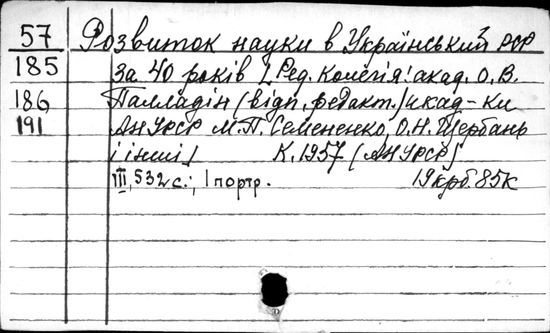 57 Розвиток науки в Український РСР
185 за 40 років [Ред. колегія: акад. О.В.
186 Палладін (відп. редакт.) акад-ки
191 АН УРСР М.П. Семененко, О.Н. Щербань
і інші] К. 1957 (АН УРСР)
III, 532 с.; 1 портр. 19крб. 85к